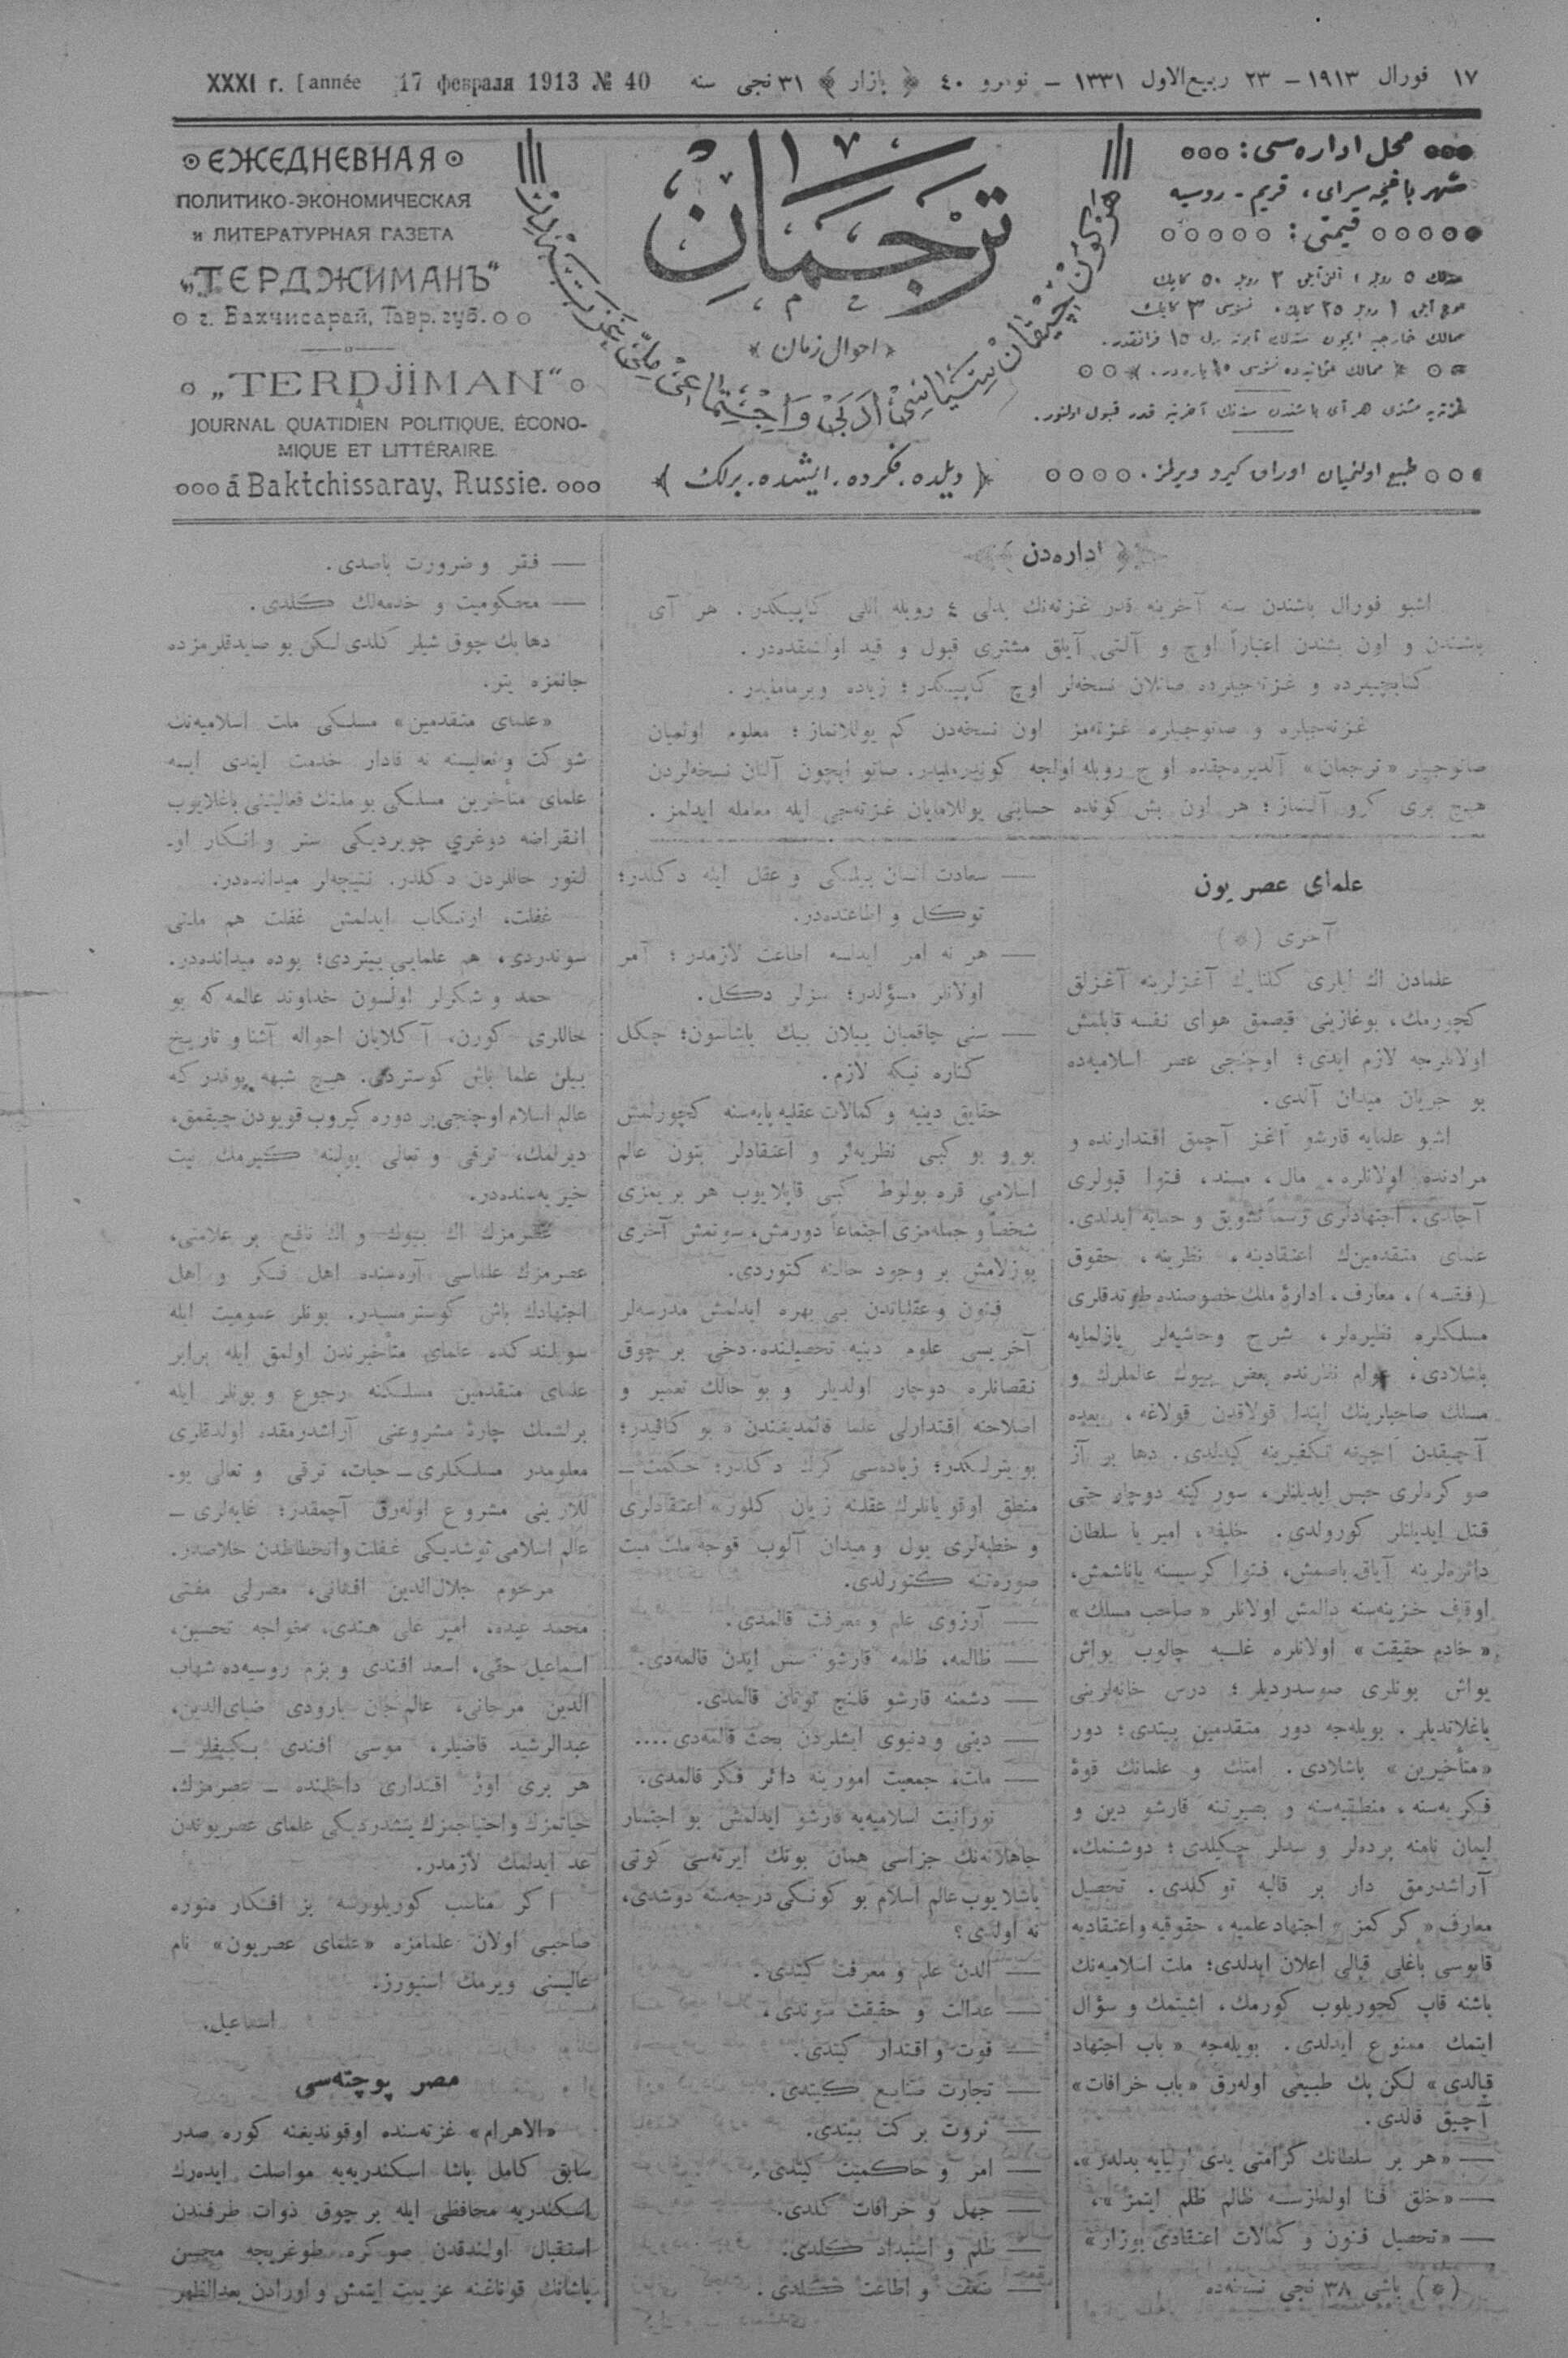 XXXI г. [année 17 февраля 1913 № 40
١٧ فورال ١٩١٣ – ٢٣ ربیع‌الاول ١٣٣١ – نومرو ٤٠ ﴿ بازار ﴾ ٣١ نجی سنه
ЕЖЕДНЕВНАЯ
ПОЛИТИКО-ЭКОНОМИЧЕСКАЯ
и ЛИТЕРАТУРНАЯ ГАЗЕТА
„ТЕРДЖИМАНЪ“
г. Бахчисарай, Тавр. губ.
„TERDJIMAN“
JOURNAL QUATIDIEN POLITIQUE, ÉCONO-
MIQUE ET LITTÉRAIRE.
á Baktchissaray, Russie.
ترجمان
﴿ احوال زمان ﴾
﴿ دیلده . فکرده . ایشده . برلك ﴾
محل اداره‌سی :
شهر باغچه‌سرای ، قریم - روسیه
قیمتی :
سنه‌لك ٥ روبل ، آلتی آیلق ٢ روبل ٥٠ کاپك
اوچ آیلق ١ روبل ٢٥ کاپك . نسخه‌سی ٣ کاپك
طبع اولنمیان اوراق کیرو ویرلمز .
﴿ اداره‌دن ﴾
اشبو فورال باشندن سنه آخرینه قدر غزته‌نك بدلی ٤ روبله اللی کاپیکدر . هر آی
باشندن و اون بشندن اعتباراً اوچ و آلتی آیلق مشتری قبول و قید اولنمقده‌در .
کتابچیلرده و غزته‌جیلرده صاتلان نسخه‌لر اوچ کاپیکدر ؛ زیاده ویرمامليدر .
غزته‌جیلره و صاتوجیلره غزته‌مز اون نسخه‌دن کم یوللانماز ؛ معلوم اولمیان
صاتوجیلر «ترجمان» آلدیره‌جقده اوچ روبله اولجه کوندرملیدر. صاتو ایچون آلنان نسخه‌لردن
هیچ بری کرو آلنماز ؛ هر اون بش کونده حسابنی یوللامایان غزته‌جی ایله معامله ایدلمز .
علمای عصریون
آخری (*)
علمادن اك ایلری کلنلرك آغزلرینه آغزلق
کچورمك، بوغازینی قیصمق هوای نفسه قاپلمش
اولانلرجه لازم ایدی ؛ اوچنجی عصر اسلامیه‌ده
بو جریان میدان آلدی .
اشبو علمایه قارشو آغز آچمق اقتدارنده و
مرادنده اولانلره ، مال ، مسند ، فتوا قپولری
آچلدی . اجتهادلری رسماً تشویق و حمایه ایدلدی.
علمای متقدمین‌ك اعتقادینه ، نظرینه ، حقوق
(فقه) ، معارف ، ادارهٔ ملك خصوصنده طوتدقلری
مسلکلره نظیره‌لر ، شرح وحاشیه‌لر یازلمایه
باشلادی ؛ عوام نظرنده بعض بیوك عالملرك و
مسلك صاحبلرینك ابتدا قولاقدن قولاغه ، بعده
آچیقدن آچیغه تکفیرینه کیدلدی . دها بر آز
صوکره‌لری حبس ایدیلنلر ، سورکینه دوچار حتی
قتل ایدیلنلر کورولدی . خلیفه ، امیر یا سلطان
دائره‌لرینه آیاق باصمش، فتوا کرسیسنه یاناشمش،
اوقاف خزینه‌سنه دالمش اولانلر «صاحب مسلك»
«خادم حقیقت» اولانلره غلبه چالوب یواش
یواش بونلری صوسدردیلر ؛ درس خانه‌لرینی
باغلاتدیلر . بویله‌جه دور متقدمین بیتدی ؛ دور
«متأخیرین» باشلادی . امتك و علمانك قوهٔ
فکریه‌سنه ، منطقیه‌سنه و بصیرتنه قارشو دین و
ایمان نامنه پرده‌لر و سدلر چکیلدی ؛ دوشنمك،
آراشدرمق دار بر قالبه توکلدی . تحصیل
معارف «کرکمز» اجتهاد علمیه ، حقوقیه واعتقادیه
قاپوسی باغلی قپالی اعلان ایدلدی؛ ملت اسلامیه‌نك
باشنه قاپ کچوریلوب کورمك ، اشیتمك و سؤال
ایتمك ممنوع ایدلدی . بویله‌جه «باب اجتهاد
قپالدی» لکن پك طبیعی اوله‌رق «باب خرافات»
آچیق قالدی .
— «هر بر سلطانك کرامتی یدی اولیایه بدلدر» ،
— «خلق فنا اولمازسه ظالم ظلم ایتمز» ،
— «تحصیل فنون و کمالات اعتقادی بوزار»
(*) باشی ٣٨ نجی نسخه‌ده
— سعادت انسان بیلیکی و عقل ایله دکلدر ؛
توکل و اطاعتده‌در.
— هر نه امر ایدلسه اطاعت لازمدر ؛ آمر
اولانلر مسؤلدر؛ سزلر دکل.
— سنی چاقمیان ییلان بیك یاشاسون؛ چکل
کناره تیکه لازم .
حقایق دینیه و کمالات عقلیه پایه‌سنه کچورلمش
بو و بو کبی نظریه‌لر و اعتقادلر بتون عالم
اسلامی قره بولوط کبی قاپلایوب هر بریمزی
شخصاً و جمله‌مزی اجتماعاً دورمش، سونمش آخری
بوزلامش بر وجود حالنه کتوردی.
فنون و عقلیاتدن بی بهره ایدلمش مدرسه‌لر
آخریسی علوم دینیه تحصیلنده دخی بر چوق
نقصانلره دوچار اولدیلر و بو حالك تعمیر و
اصلاحنه اقتدارلی علما قالمدیغندن «بو کافیدر ؛
بو یترلکدر ؛ زیاده‌سی کرك دکلدر ؛ حکمت –
منطق اوقویانلرك عقلنه زیان کلور» اعتقادلری
و خطبه‌لری یول و میدان آلوب قوجه ملت میت
صورتنه کتورلدی.
— آرزوی علم و معرفت قالمدی.
— ظالمه، ظلمه قارشو سس ایدن قالمه‌دی.
— دشمنه قارشو قلنج توتان قالمدی.
— دینی و دنیوی ایشلردن بحث قالمه‌دی....
— ملت، جمعیت امورینه دائر فکر قالمدی.
نورانیت اسلامیه‌یه قارشو ایدلمش بو اجتسار
جاهلانه‌نك جزاسی همان بونك ایرته‌سی کونی
باشلایوب عالم اسلام بو کونکی درجه‌سنه دوشدی،
نه اولدی ؟
— الدن علم و معرفت کیتدی .
— عدالت و حقیقت سوندی .
— قوت و اقتدار کیتدی .
— تجارت صنایع کیتدی .
— ثروت برکت بیتدی.
— امر و حاکمیت کیتدی .
— جهل و خرافات کلدی.
— ظلم و استبداد کلدی.
— ضعف و اطاعت کلدی .
— فقر و ضرورت باصدی .
— محکومیت و خدمه‌لك کلدی .
دها بك چوق شیلر کلدی لکن بو صایدقلرمزده
جانمزه یتر.
«علمای متقدمین» مسلکی ملت اسلامیه‌نك
شوکت و تعالیسنه نه قادار خدمت ایتدی ایسه
علمای متأخرین مسلکی بو ملتك فعالیتنی باغلایوب
انقراضه دوغری چویردیکی ستر و انکار او-
لنور حاللردن دکلدر. نتیجه‌لر میدانده‌در.
غفلت، ارتکاب ایدلمش غفلت هم ملتی
سوندردی، هم علمایی بیتردی؛ بوده میدانده‌در.
حمد و شکرلر اولسون خداوند عالمه که بو
حاللری کورن، آکلایان احواله آشنا و تاریخ
بیلن علما باش کوستردی. هیچ شبهه یوقدر که
عالم اسلام اوچنجی بر دوره کیروب قویودن چیقمق،
دیرلمك، ترقی و تعالی یولینه کیرمك نیت
خیریه‌سنده‌در.
عصرمزك اك بیوك و اك نافع بر علامتی،
عصرمزك علماسی آره‌سنده اهل فکر و اهل
اجتهادك باش کوسترمسیدر. بونلر عمومیت ایله
سویلندکده علمای متأخیرندن اولمق ایله برابر
علمای متقدمین مسلکنه رجوع و بونلر ایله
برلشمك چارهٔ مشروعنی آراشدرمقده اولدقلری
معلومدر مسلکلری – حیات، ترقی و تعالی یو-
للارینی مشروع اوله‌رق آچمقدر؛ غایه‌لری –
عالم اسلامی توشدیکی غفلت وانحطاطدن خلاصدر.
مرحوم جلال‌الدین افغانی، مصرلی مفتی
محمد عبده، امیر علی هندی، خواجه تحسین،
اسماعیل حقی، اسعد افندی و بزم روسیه‌ده شهاب
الدین مرجانی، عالم‌جان بارودی ضیای‌الدین،
عبدالرشید قاضیلر، موسی افندی بکییفلر –
هر بری اوز اقتداری داخلنده – عصرمزك،
حیاتمزك واحتیاجمزك یتشدردیکی علمای عصریوندن
عد ایدلمك لازمدر.
اکر مناسب کوریلورسه بز افکار منوره
صاحبی اولان علمامزه «علمای عصریون» نام
عالیسنی ویرمك استیورز.
اسماعیل.
مصر پوچته‌سی
«الاهرام» غزته‌سنده اوقوندیغنه کوره صدر
سابق کامل پاشا اسکندریه‌یه مواصلت ایده‌رك
اسکندریه محافظی ایله بر چوق ذوات طرفندن
استقبال اولندقدن صوکره طوغریجه محسن
پاشانك قوناغنه عزیمت ایتمش و اورادن بعدالظهر